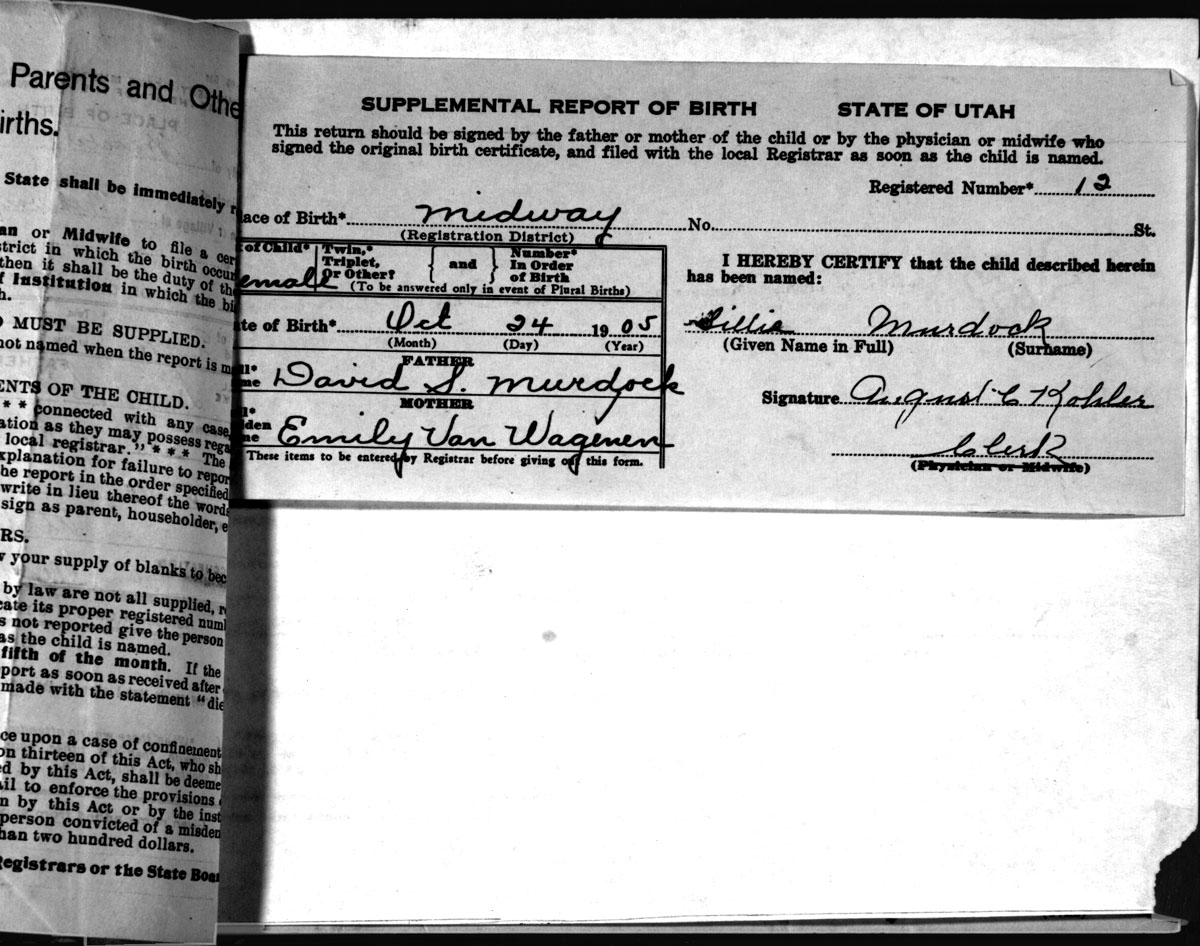 Parents and Othe
irths.
State shall be immediately r
an or Midwife to file a cer
strict in which the birth occur
then it shall be the duty of the
f Institution in which the bi
h.
O MUST BE SUPPLIED.
not named when the report is m
ENTS OF THE CHILD.
* * connected with any case,
ation as they may possess rega
local registrar." * * * The
xplanation for failure to repor
he report in the order specified
write in lieu thereof the words
sign as parent, householder, e
RS.
w your supply of blanks to bec
by law are not all supplied, r
cate its proper registered num
s not reported give the person
as the child is named.
fifth of the month. If the
port as soon as received after
made with the statement "die
ce upon a case of confinement
on thirteen of this Act, who sh
ed by this Act, shall be deeme
ail to enforce the provisions
n by this Act or by the inst
person convicted of a misden
han two hundred dollars.
Registrars or the State Boar
SUPPLEMENTAL REPORT OF BIRTH STATE OF UTAH
This return should be signed by the father or mother of the child or by the physician or midwife who
signed the original birth certificate, and filed with the local Registrar as soon as the child is named.
Registered Number* 12
lace of Birth* Midway No. St.
(Registration District)
of Child* Twin,* Triplet, or Other? and Number* In Order of Birth
emale (To be answered only in event of Plural Births)
te of Birth* Oct 24 1905
(Month) (Day) (Year)
FATHER
ll* me David S. Murdock
MOTHER
ll* iden me Emily Van Wagenen
These items to be entered by Registrar before giving out this form.
I HEREBY CERTIFY that the child described herein
has been named:
Lillie Murdock
(Given Name in Full) (Surname)
Signature August C Kohler
Clerk
(Physician or Midwife)